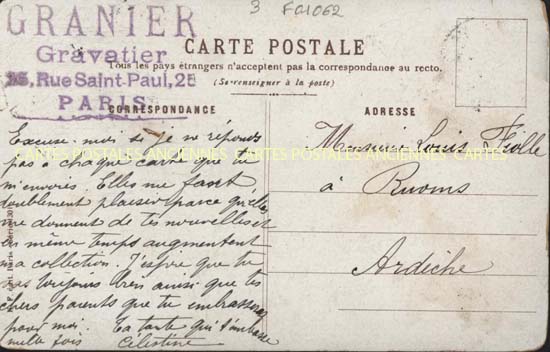 GRANIER
Gravatier
25, Rue Saint-Paul, 25
PARIS
3 FC1062
CARTE POSTALE
Tous les pays étrangers n'acceptent pas la correspondance au recto.
(Se renseigner à la poste)
CORRESPONDANCE
Excuse moi si je ne réponds
pas à chaque carte que tu
m'envoies. Elles me font
doublement plaisir parce qu'elles
me donnent de tes nouvelles et
en même temps augmentent
ma collection. J'espère que tu
vas toujours bien ainsi que tes
chers parents que tu embrasseras
pour moi. Ta tante qui t'embrasse
mille fois Célestine
ADRESSE
Monsieur Louis
à Ruoms
Ardèche
CARTES POSTALES ANCIENNES CARTES POSTALES ANCIENNES CARTES POSTALES